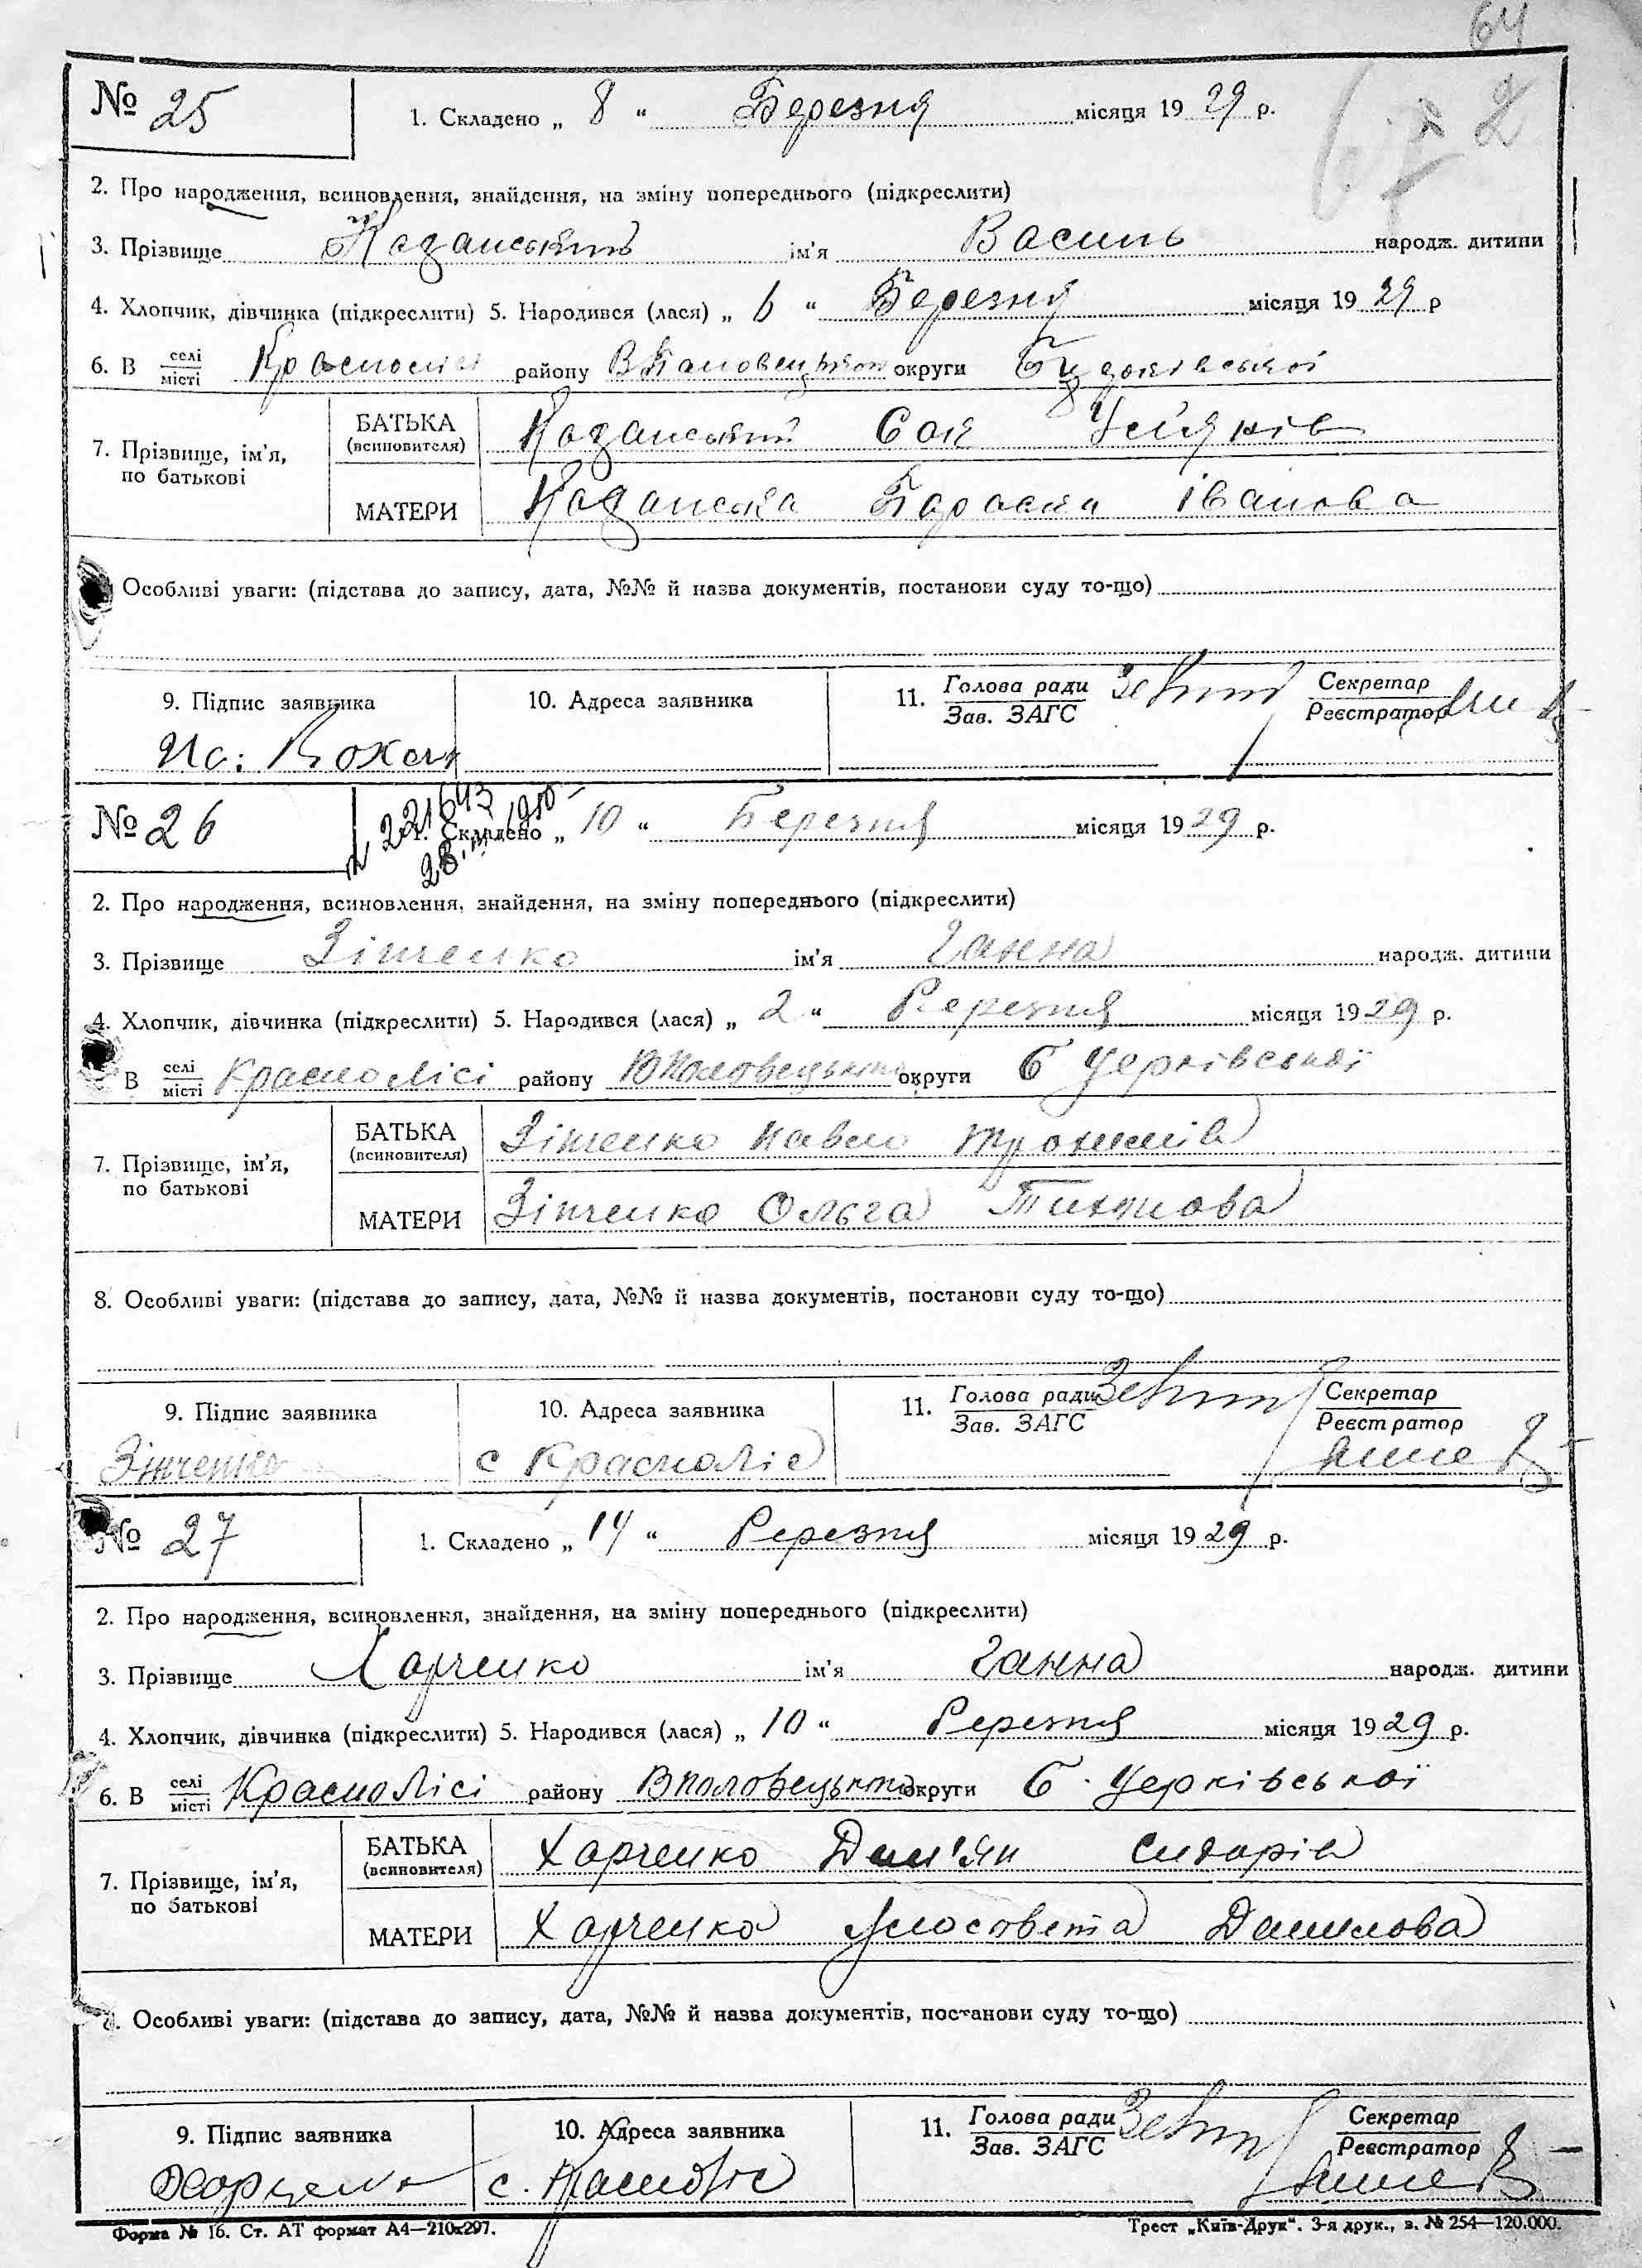 64
№ 25 1. Складено „ 8 “ Березня місяця 19 29 р.
2. Про народження, всиновлення, знайдення, на зміну попереднього (підкреслити)
3. Прізвище ім'я Василь народж. дитини
4. Хлопчик, дівчинка (підкреслити) 5. Народився (лася) „ 6 “ Березня місяця 19 29 р
6. В селі/місті району округи
7. Прізвище, ім'я, по батькові
БАТЬКА (всиновителя)
МАТЕРИ Іванова
Особливі уваги: (підстава до запису, дата, №№ й назва документів, постанови суду то-що)
9. Підпис заявника 10. Адреса заявника 11. Голова ради/Зав. ЗАГС Секретар/Реєстратор
№ 26 1. Складено „ 10 “ Березня місяця 19 29 р.
2. Про народження, всиновлення, знайдення, на зміну попереднього (підкреслити)
3. Прізвище Зінченко ім'я Ганна народж. дитини
4. Хлопчик, дівчинка (підкреслити) 5. Народився (лася) „ 2 “ Березня місяця 19 29 р.
В селі/місті Краснолісі району округи Б Церківської
7. Прізвище, ім'я, по батькові
БАТЬКА (всиновителя) Зінченко Павло
МАТЕРИ Зінченко Ольга
8. Особливі уваги: (підстава до запису, дата, №№ й назва документів, постанови суду то-що)
9. Підпис заявника 10. Адреса заявника 11. Голова ради/Зав. ЗАГС Секретар/Реєстратор
Зінченко с Красноліс
№ 27 1. Складено „ 14 “ Березня місяця 19 29 р.
2. Про народження, всиновлення, знайдення, на зміну попереднього (підкреслити)
3. Прізвище Харченко ім'я Ганна народж. дитини
4. Хлопчик, дівчинка (підкреслити) 5. Народився (лася) „ 10 “ Березня місяця 19 29 р.
6. В селі/місті Краснолісі району округи Б. Церківської
7. Прізвище, ім'я, по батькові
БАТЬКА (всиновителя) Харченко Дем'ян Сидорів
МАТЕРИ Харченко Данилова
Особливі уваги: (підстава до запису, дата, №№ й назва документів, постанови суду то-що)
9. Підпис заявника 10. Адреса заявника 11. Голова ради/Зав. ЗАГС Секретар/Реєстратор
с. Красноліс
Форма № 16. Ст. АТ формат А4—210х297. Трест „Київ-Друк“. 3-я друк., з. № 254—120.000.